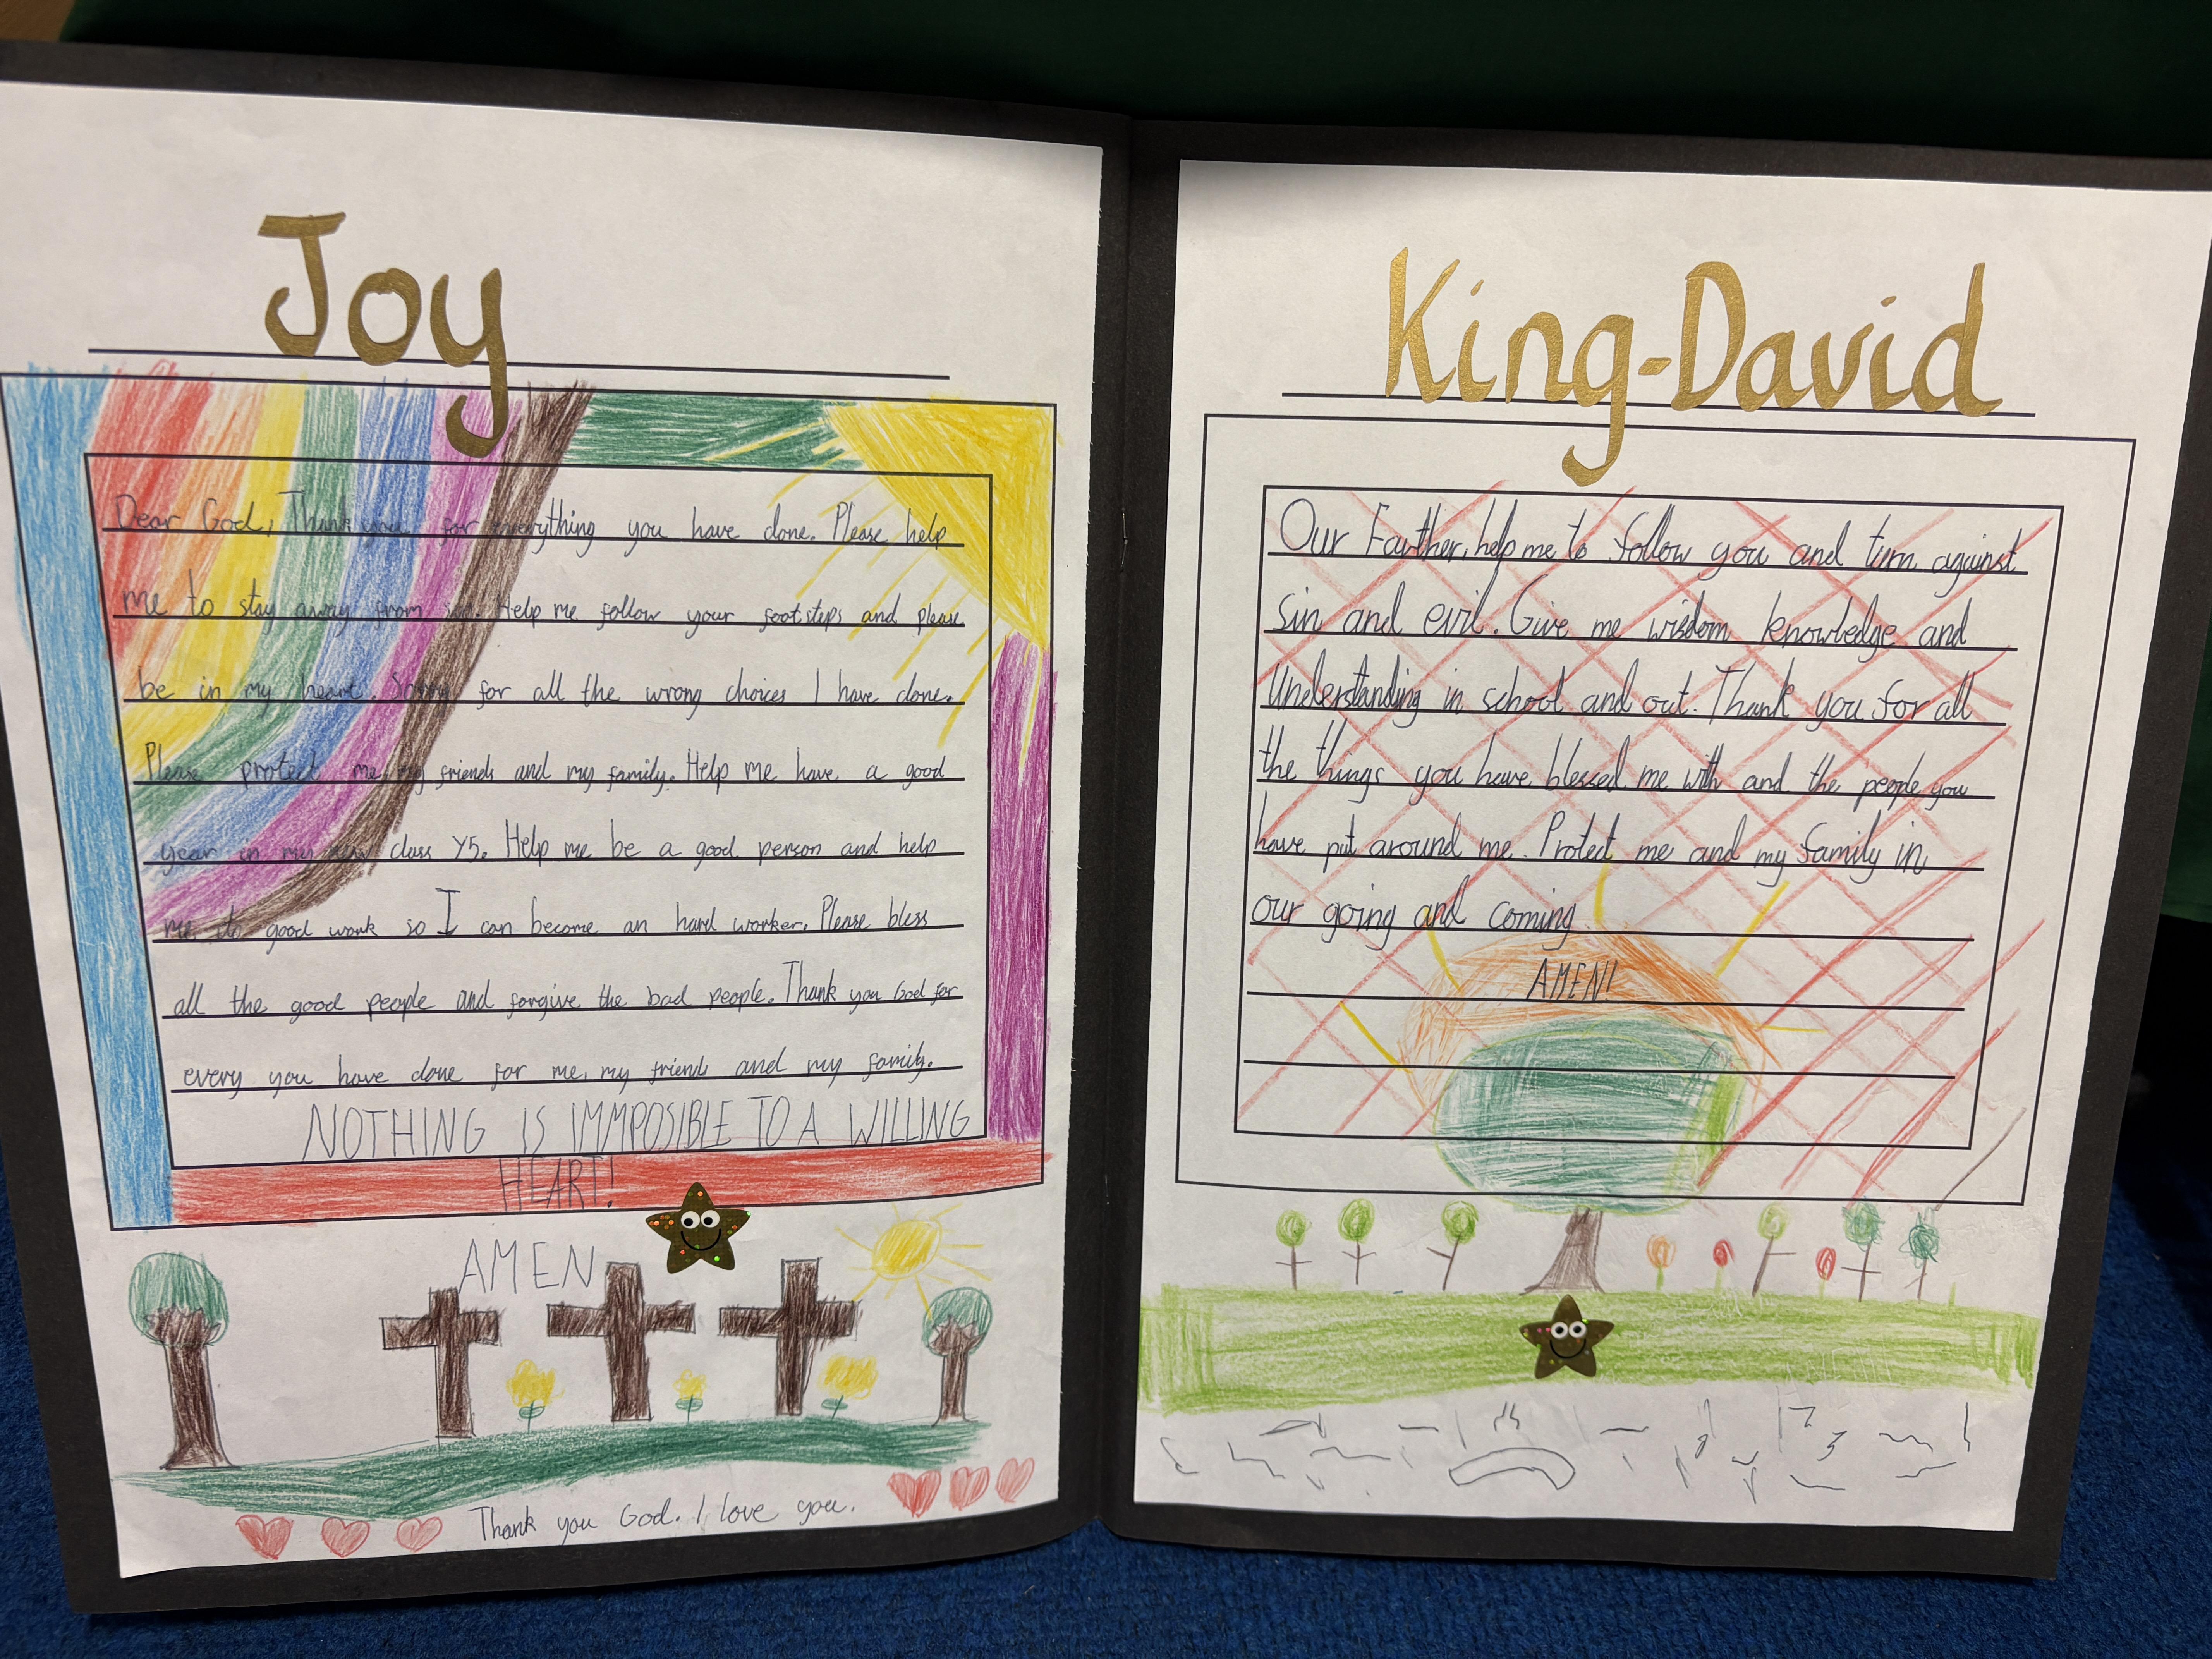 Joy
Dear God, Thank you for everything you have done. Please help
me to stay away from sin. Help me follow your footsteps and please
be in my heart. Sorry for all the wrong choices I have done.
Please protect me, my friends and my family. Help me have a good
year in my new class Y5. Help me be a good person and help
me to good work so I can become an hard worker. Please bless
all the good people and forgive the bad people. Thank you God for
every you have done for me, my friends and my family.
NOTHING IS IMMPOSIBLE TO A WILLING
HEART!
AMEN
Thank you God. I love you.
King-David
Our Farther, help me to follow you and turn against
sin and evil. Give me wisdom knowledge and
understanding in school and out. Thank you for all
the things you have blessed me with and the people you
have put around me. Protect me and my family in
our going and coming
AMEN!